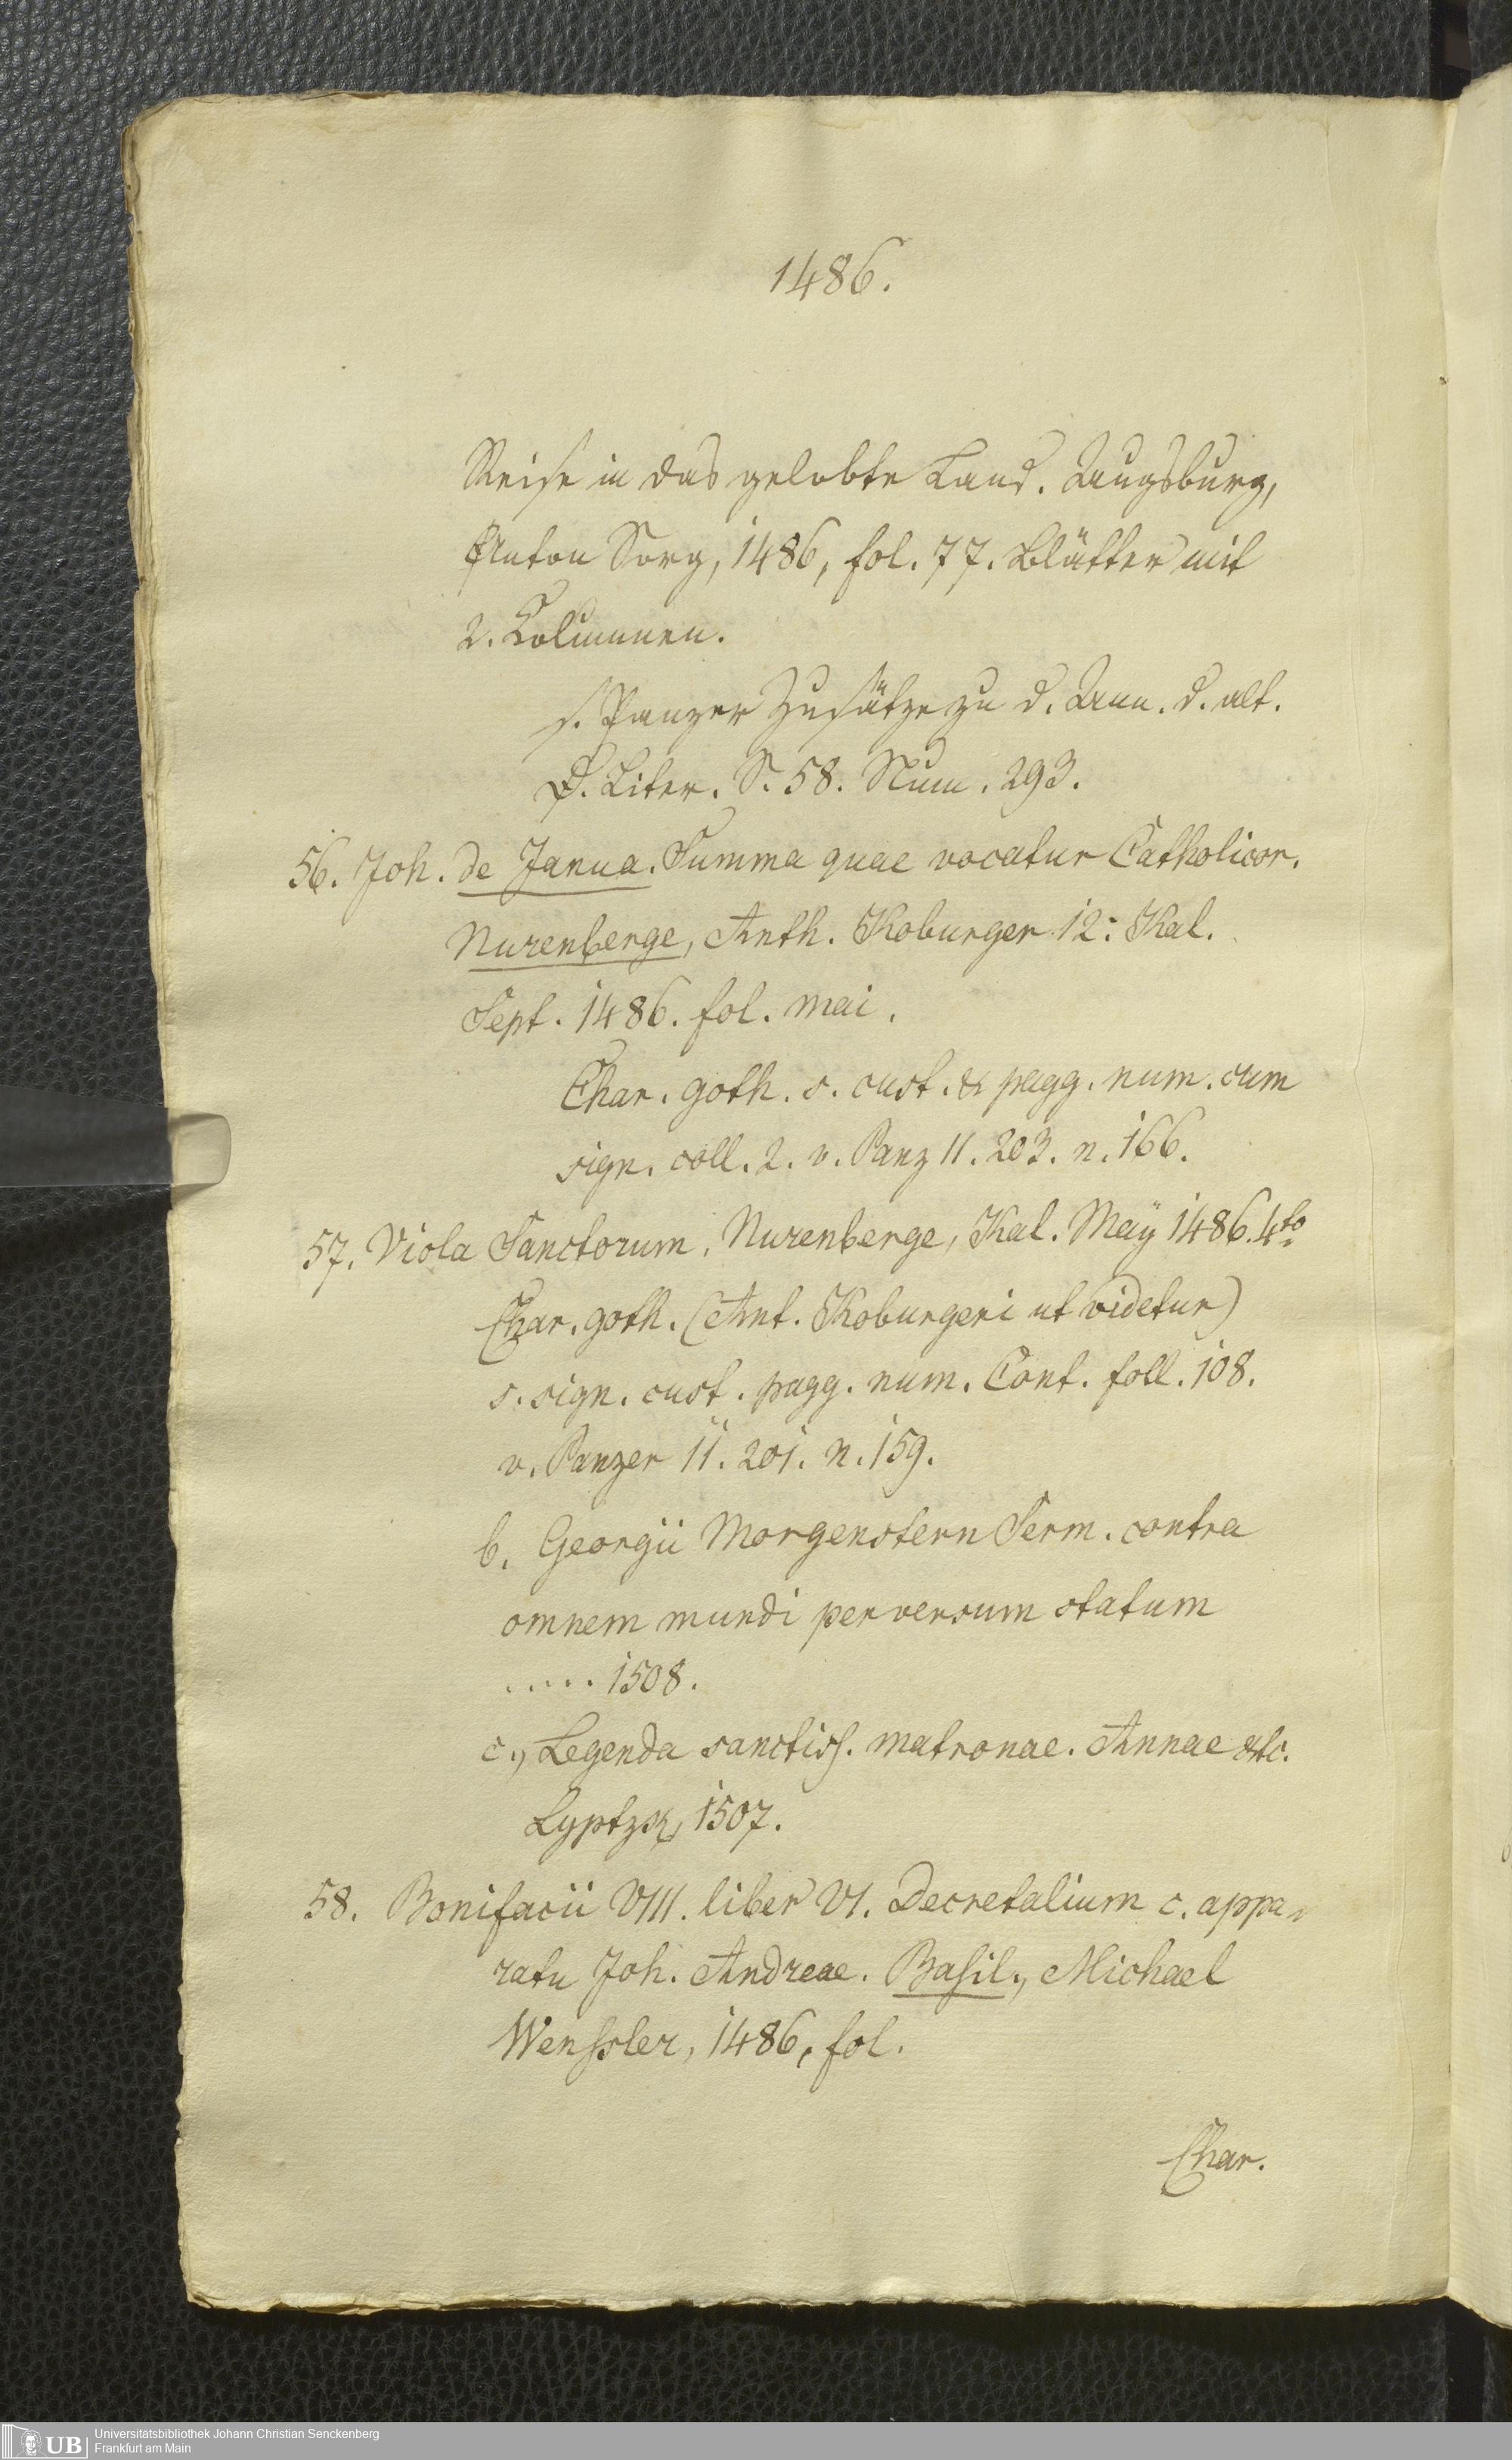 1486.
Reise in das gelobte Land. Augsburg,
Anton Sorg, 1486, fol. 77. Blätter mit
2. Columnen.
s. Panzer Zusätze zu d. Ann. d. alt.
D. Liter. S. 58. Num. 293.
56. Joh. de Janua. Summa quae vocatur Catholicon.
Nurenberge, Anth. Koburger 12. Kal.
Sept. 1486. fol. mai.
Char. goth. s. cust. & pagg. num. cum
sign. coll. 2. v. Panz 11. 203. n. 166.
57. Viola Sanctorum. Nurenberge, Kal. Maÿ 1486. 4to
Char. goth. (Ant. Koburgeri ut videtur)
s. sign. cust. pagg. num. Cont. foll. 108.
v. Panzer ii. 201. n. 159.
b. Georgii Morgenstern Serm. contra
omnem mundi perversum statum
..... 1508.
c., Legenda sanctiss. matronae. Annae etc.
Lyptzk, 1507.
58. Bonifacii VIII. liber VI. Decretalium c. appa-
ratu Joh. Andreae. Basil., Michael
Wenssler, 1486, fol.
Char.
UB
Universitätsbibliothek Johann Christian Senckenberg
Frankfurt am Main